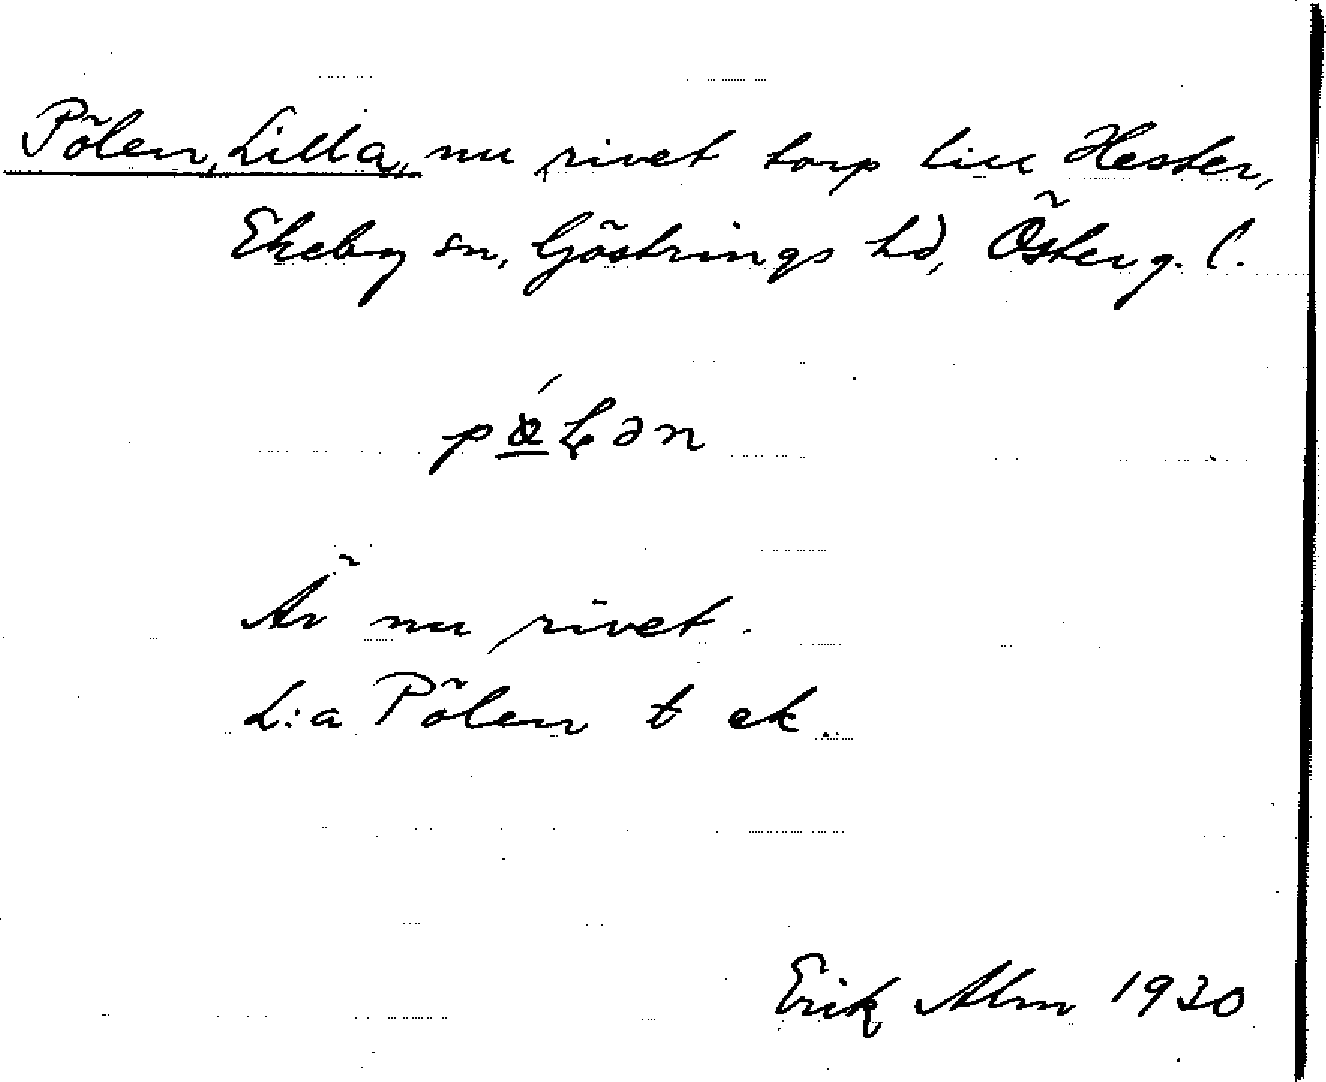 Pölen, Lilla, nu rivet torp till Hester,
Ekeby sn, Göstrings hd, Österg. l.
Är nu rivet.
L:a Pölen t ek.
Erik Alm 1930